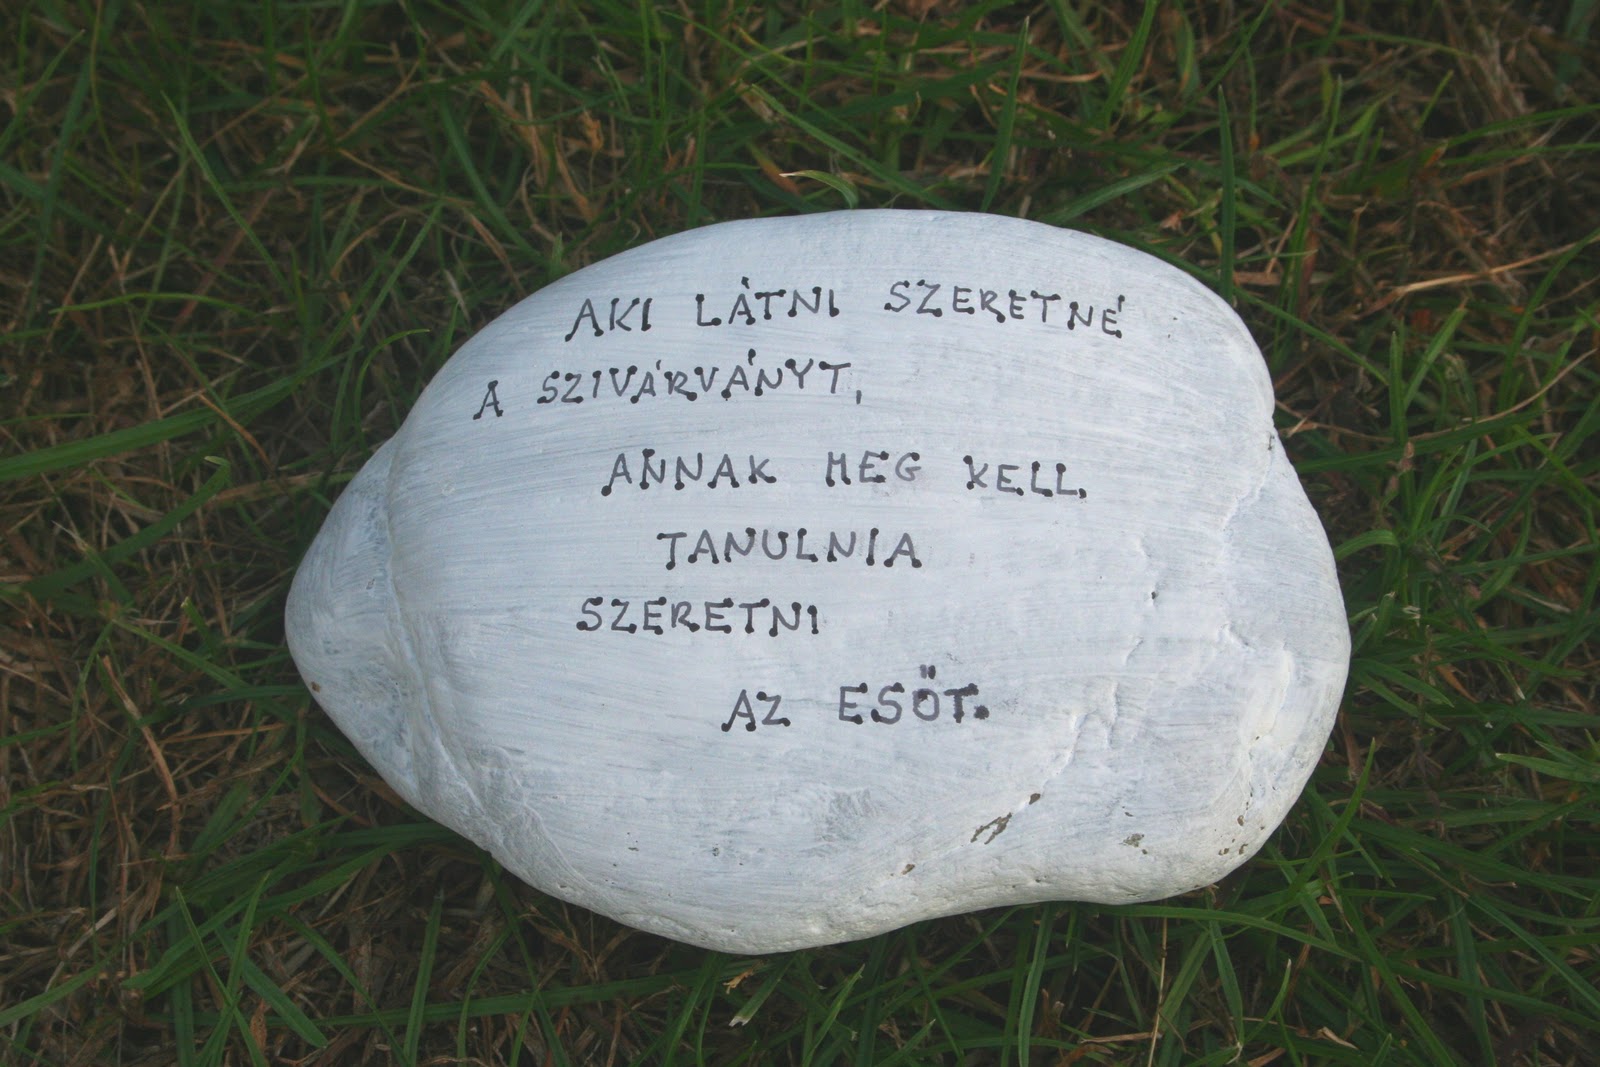 AKI LÁTNI SZERETNÉ
A SZIVÁRVÁNYT,
ANNAK MEG KELL
TANULNIA
SZERETNI
AZ ESÖT.